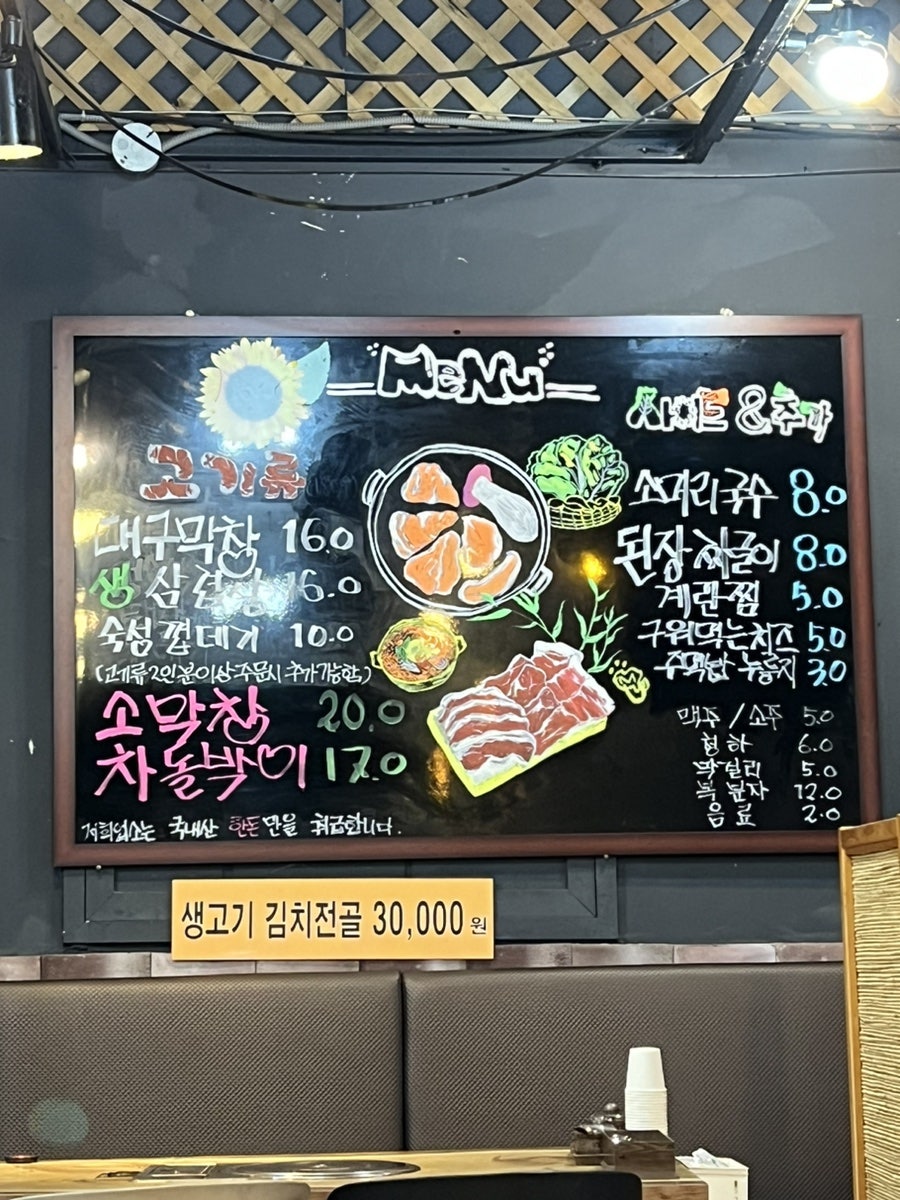 MeNu
고기류
대구막창 16.0
생삼겹살 16.0
숙성껍데기 10.0
(고기류 2인분이상 주문시 추가가능함)
소막창 20.0
차돌박이 17.0
저희업소는 국내산 한돈만을 취급합니다.
사이드&추가
소머리국수 8.0
된장찌글이 8.0
계란찜 5.0
구워먹는치즈 5.0
주먹밥 누룽지 3.0
맥주 / 소주 5.0
청하 6.0
막걸리 5.0
복분자 12.0
음료 2.0
생고기 김치전골 30,000원